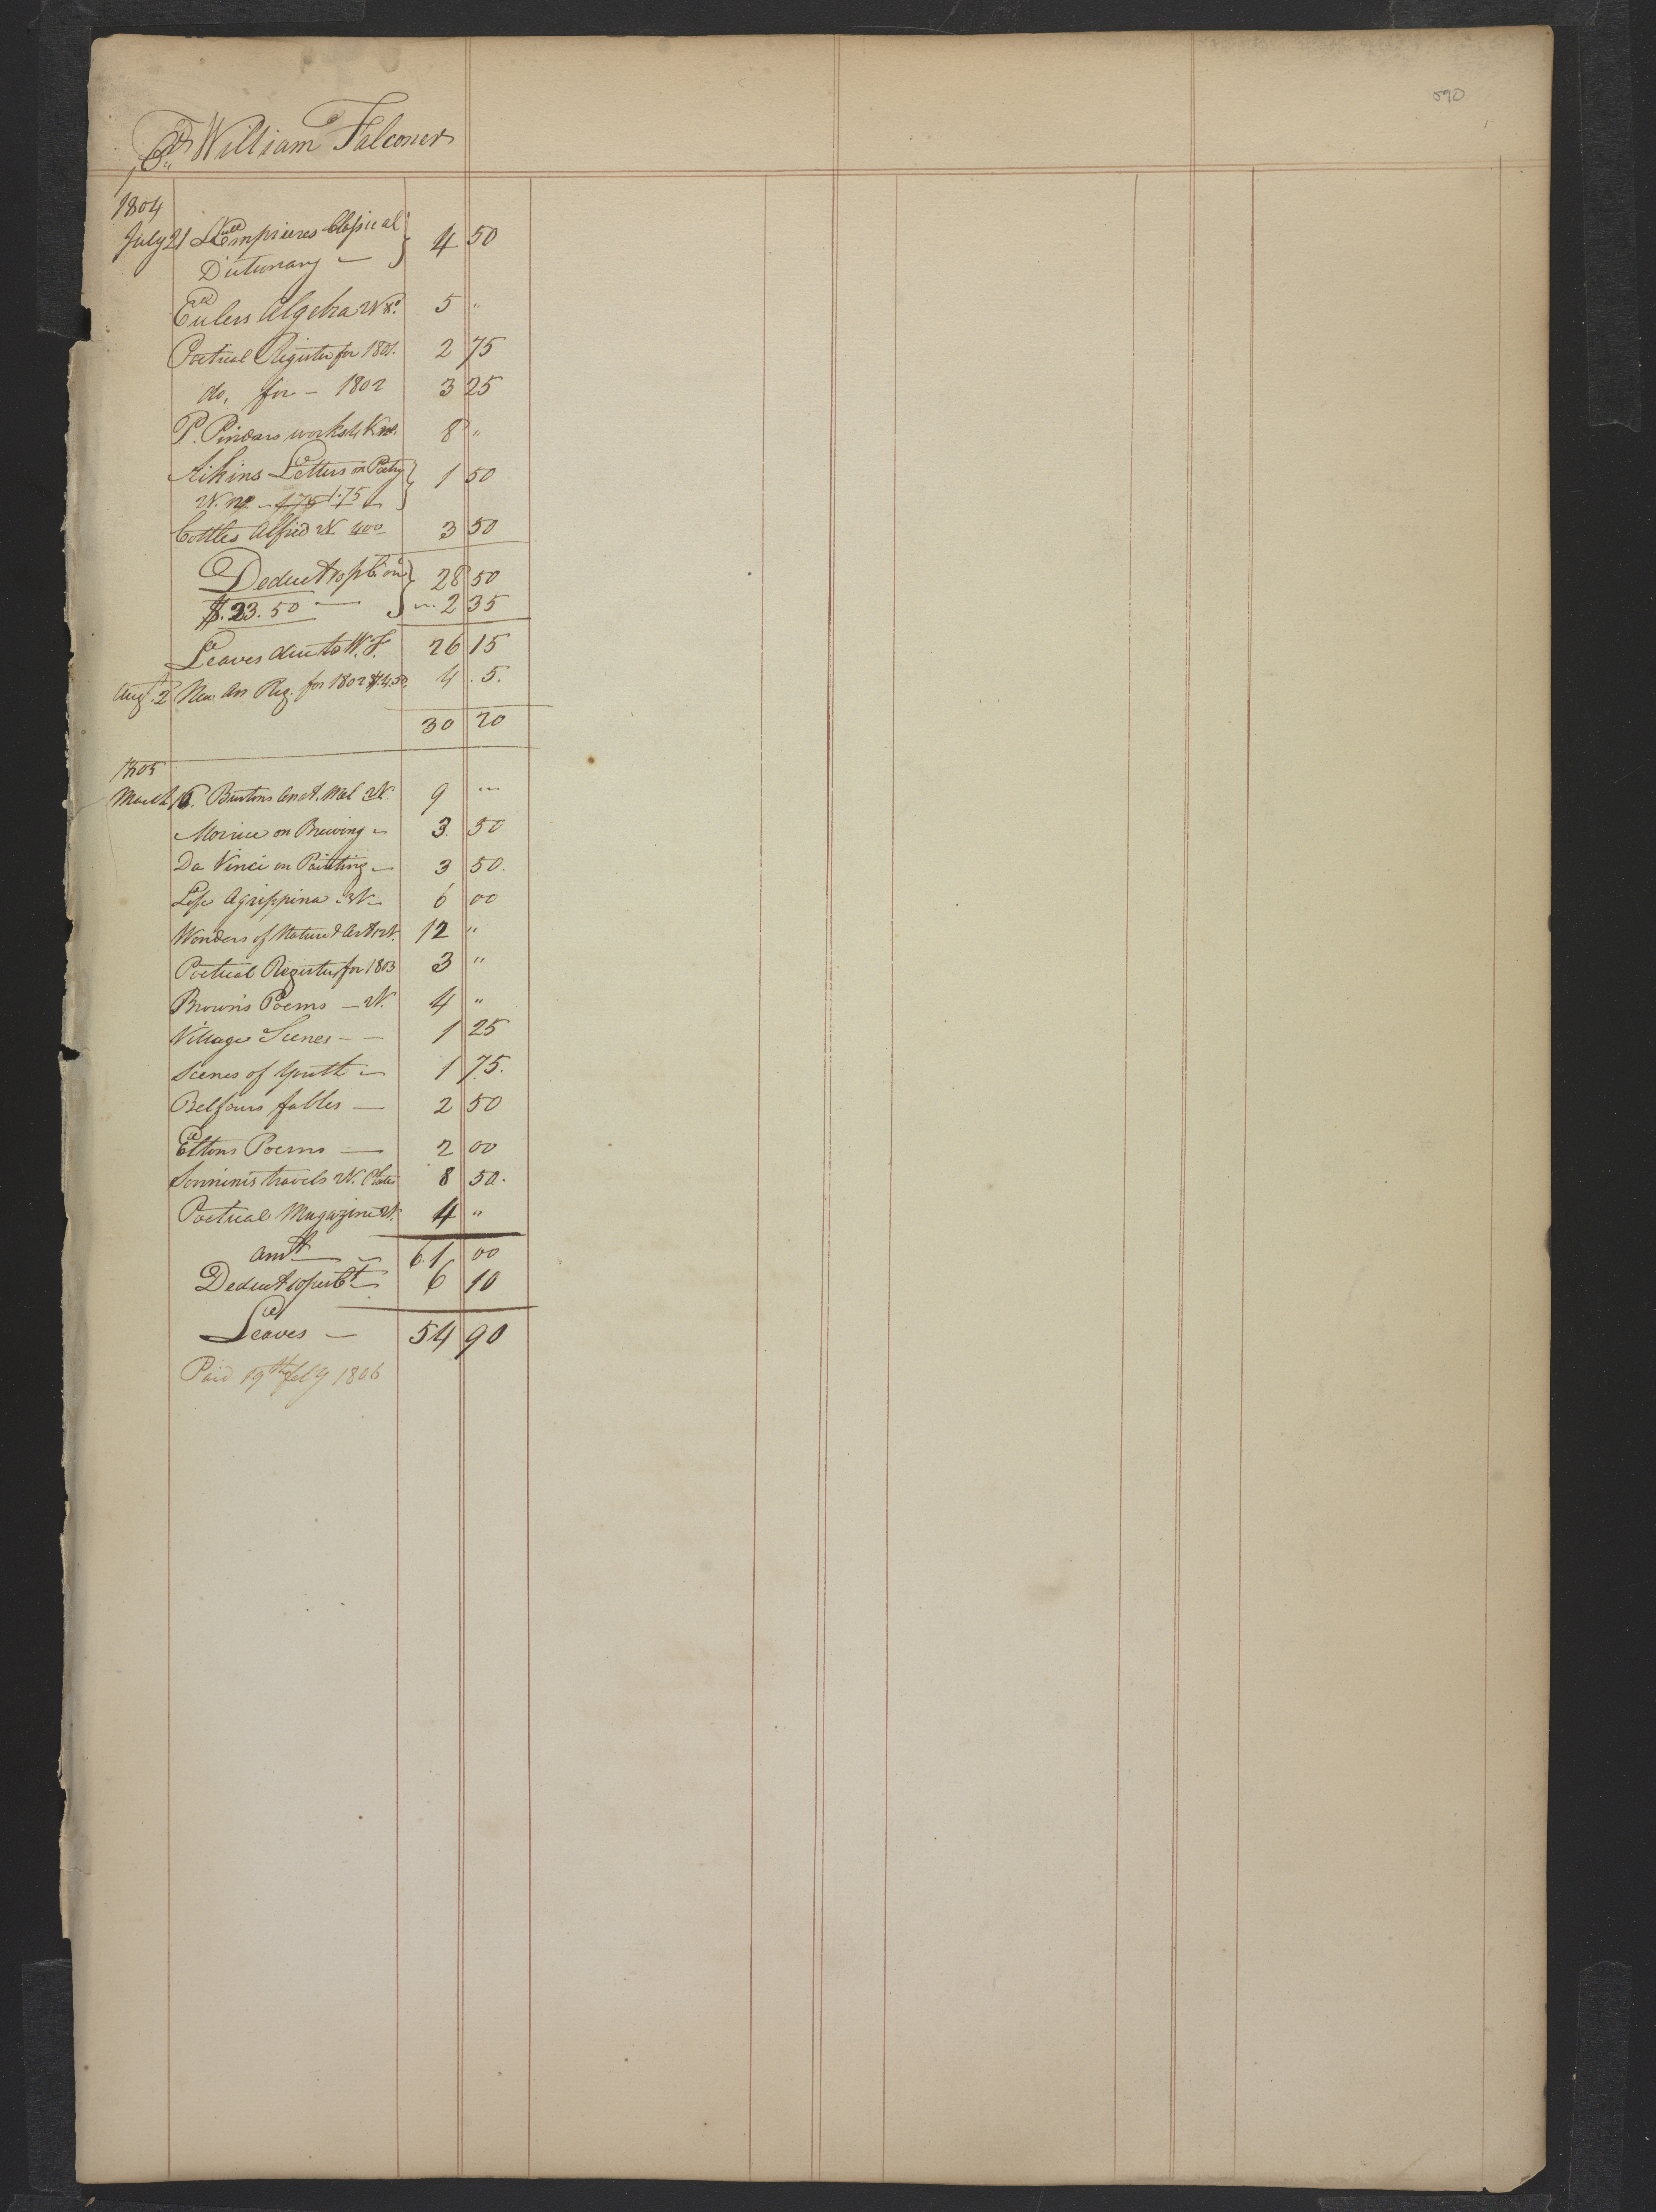 590
Cr. William Falconer
1804
July 21 Lemprieres Classical } 4 50
Dictionary —
Eulers Algebra 2 V. 5 "
Poetical Register for 1801. 2 75
do. for — 1802 3 25
P. Pindars works 4 V. 8 "
Aikins Letters on Poetry } 1 50
1.75
Cottles Alfred 2 V. 400 3 50
Deduct 10 p Ct on } 28 50
$.23.50 — 2 35
Leaves due to W. F. 26 15
Aug. 2 New An Reg. for 1802 $4.50. 4 . 5.
30 20
1805
March 16. Burtons Anat. Mel 2 V. 9 "
Morrice on Brewing — 3. 50
Da Vinci on Painting — 3 50.
Life Agrippina 3 V. — 6 00
Wonders of Nature & Art 12 V. 12 "
Poetical Register for 1803 3 "
Brown's Poems — 2 V. 4 "
Village Scenes — — 1 25
Scenes of Youth — 1 75.
Belfours fables — 2 50
Eltons Poems — 2 00
Sonninis travels 2 V. Plates 8 50.
Poetical Magazine 2 V. 4 "
Amt — 61 00
Deduct 10 per Ct — 6 10
Leaves — 54 90
Paid 19th feby 1806